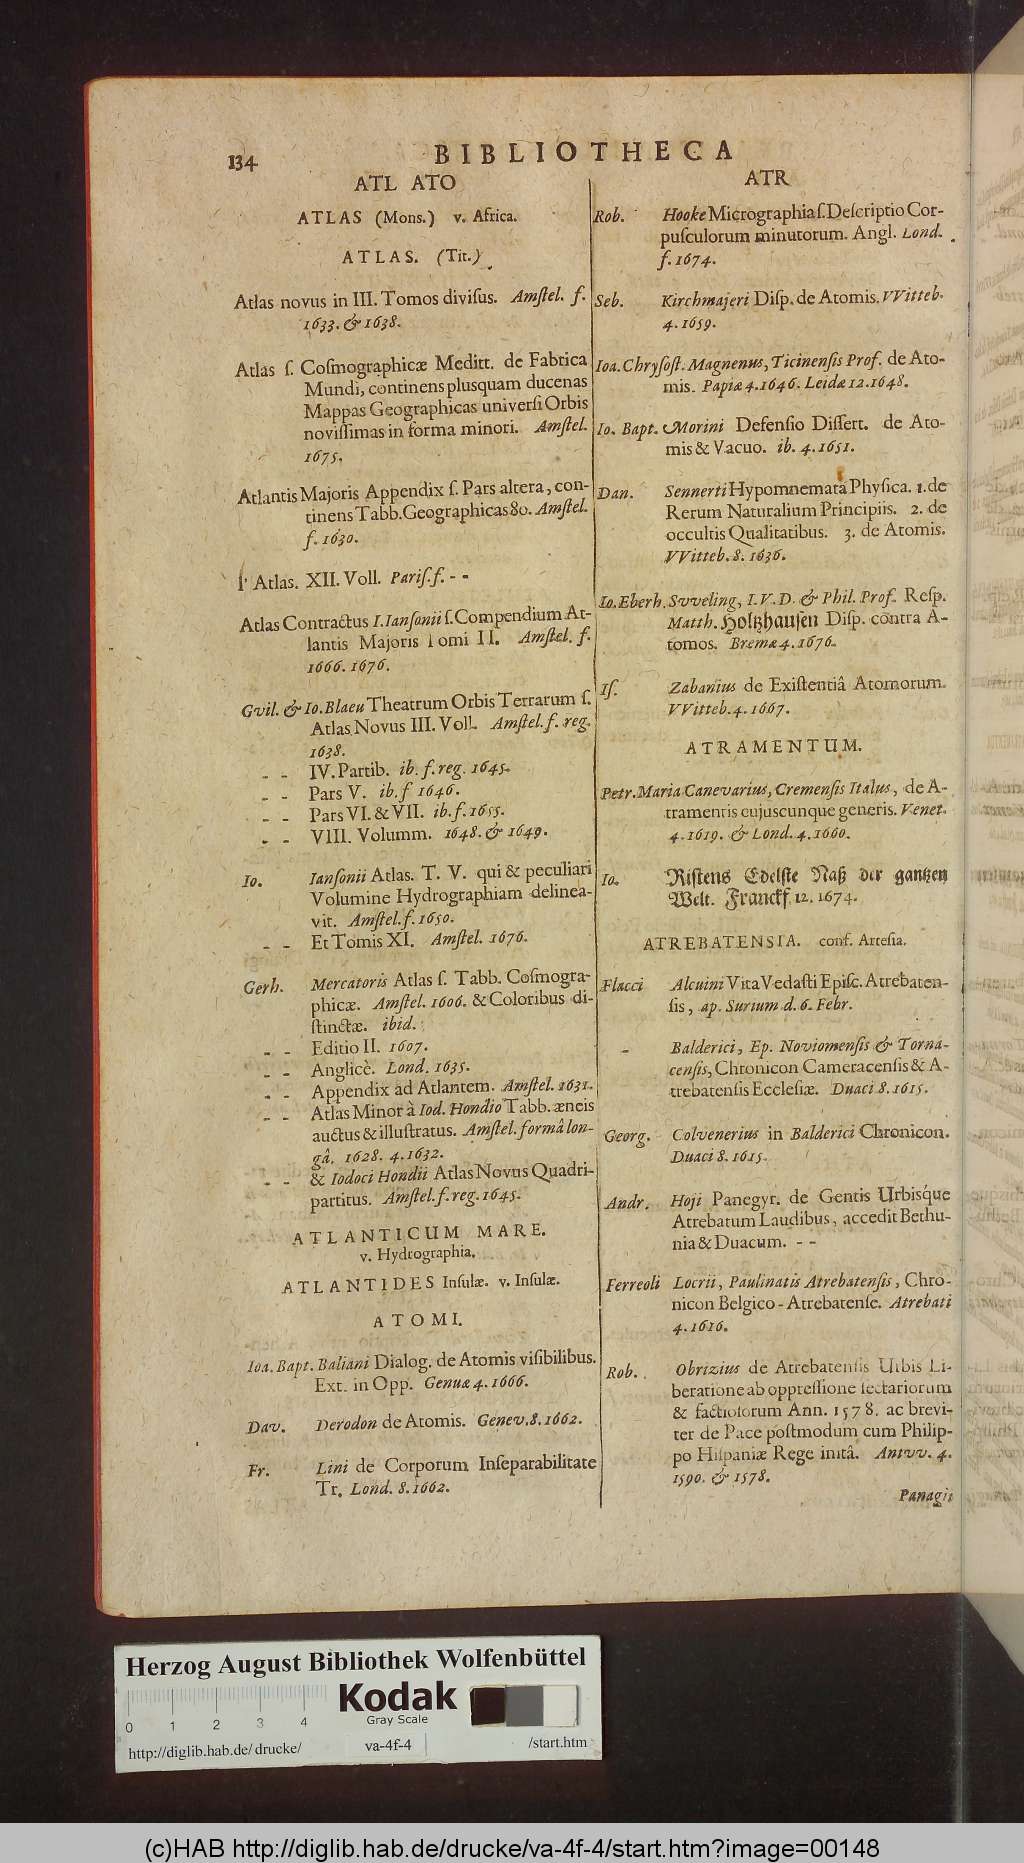 134
BIBLIOTHECA
ATL ATO
ATLAS (Mons.) v. Africa.
ATLAS. (Tit.)
Atlas novus in III. Tomos divisus. Amstel. f.
1633. & 1638.
Atlas ſ. Coſmographicæ Meditt. de Fabrica
Mundi, continens plusquam ducenas
Mappas Geographicas universi Orbis
noviſſimas in forma minori. Amſtel.
1675.
Atlantis Majoris Appendix ſ. Pars altera, con-
tinens Tabb. Geographicas 80. Amſtel.
f. 1630.
l' Atlas. XII. Voll. Pariſ. f. - -
Atlas Contractus I. Ianſonii ſ. Compendium At-
lantis Majoris Tomi II. Amſtel. f.
1666. 1676.
Gvil. & Io. Blaeu Theatrum Orbis Terrarum ſ.
Atlas Novus III. Voll. Amſtel. f. reg.
1638.
- - IV. Partib. ib. f. reg. 1645.
- - Pars V. ib. f 1646.
- - Pars VI. & VII. ib. f. 1655.
- - VIII. Volumm. 1648. & 1649.
Io. Ianſonii Atlas. T. V. qui & peculiari
Volumine Hydrographiam delinea-
vit. Amſtel. f. 1650.
- - Et Tomis XI. Amſtel. 1676.
Gerh. Mercatoris Atlas ſ. Tabb. Coſmogra-
phicæ. Amſtel. 1606. & Coloribus di-
ſtinctæ. ibid.
- - Editio II. 1607.
- - Anglicè. Lond. 1635.
- - Appendix ad Atlantem. Amſtel. 1631.
- - Atlas Minor à Iod. Hondio Tabb. æneis
auctus & illuſtratus. Amſtel. formâ lon-
gâ. 1628. 4. 1632.
- - & Iodoci Hondii Atlas Novus Quadri-
partitus. Amſtel. f. reg. 1645.
ATLANTICUM MARE.
v. Hydrographia.
ATLANTIDES Inſulæ. v. Inſulæ.
ATOMI.
Ioa. Bapt. Baliani Dialog. de Atomis viſibilibus.
Ext. in Opp. Genuæ 4. 1666.
Dav. Derodon de Atomis. Genev. 8. 1662.
Fr. Lini de Corporum Inſeparabilitate
Tr. Lond. 8. 1662.
ATR
Rob. Hooke Micrographia ſ. Deſcriptio Cor-
puſculorum minutorum. Angl. Lond.
f. 1674.
Seb. Kirchmajeri Diſp. de Atomis. VVitteb.
4. 1659.
Ioa. Chryſoſt. Magnenus, Ticinenſis Prof. de Ato-
mis. Papiæ 4. 1646. Leidæ 12. 1648.
Io. Bapt. Morini Defenſio Diſſert. de Ato-
mis & Vacuo. ib. 4. 1651.
Dan. Sennerti Hypomnemata Phyſica. 1. de
Rerum Naturalium Principiis. 2. de
occultis Qualitatibus. 3. de Atomis.
VVitteb. 8. 1636.
Io. Eberh. Svveling, I. V. D. & Phil. Prof. Reſp.
Matth. Holtzhauſen Diſp. contra A-
tomos. Bremæ 4. 1676.
Iſ. Zabanius de Exiſtentiâ Atomorum.
VVitteb. 4. 1667.
ATRAMENTUM.
Petr. Maria Canevarius, Cremenſis Italus, de A-
tramentis cujuscunque generis. Venet.
4. 1619. & Lond. 4. 1660.
Io. Riſtens Edelſte Naß der gantzen
Welt. Franckf 12. 1674.
ATREBATENSIA. conf. Arteſia.
Flacci Alcuini Vita Vedaſti Epiſc. Atrebaten-
ſis, ap. Surium d. 6. Febr.
- Balderici, Ep. Noviomenſis & Torna-
cenſis, Chronicon Cameracenſis & A-
trebatenſis Eccleſiæ. Duaci 8. 1615.
Georg. Colvenerius in Balderici Chronicon.
Duaci 8. 1615.
Andr. Hoji Panegyr. de Gentis Urbisque
Atrebatum Laudibus, accedit Bethu-
nia & Duacum. - -
Ferreoli Locrii, Paulinatis Atrebatenſis, Chro-
nicon Belgico-Atrebatenſe. Atrebati
4. 1616.
Rob. Obrizius de Atrebatenſis Urbis Li-
beratione ab oppreſſione ſectariorum
& factioſorum Ann. 1578. ac brevi-
ter de Pace poſtmodum cum Philip-
po Hiſpaniæ Rege initâ. Antvv. 4.
1590. & 1578.
Panagii
Herzog August Bibliothek Wolfenbüttel
Kodak
Gray Scale
0 1 2 3 4
http://diglib.hab.de/drucke/ va-4f-4 /start.htm
(c)HAB http://diglib.hab.de/drucke/va-4f-4/start.htm?image=00148